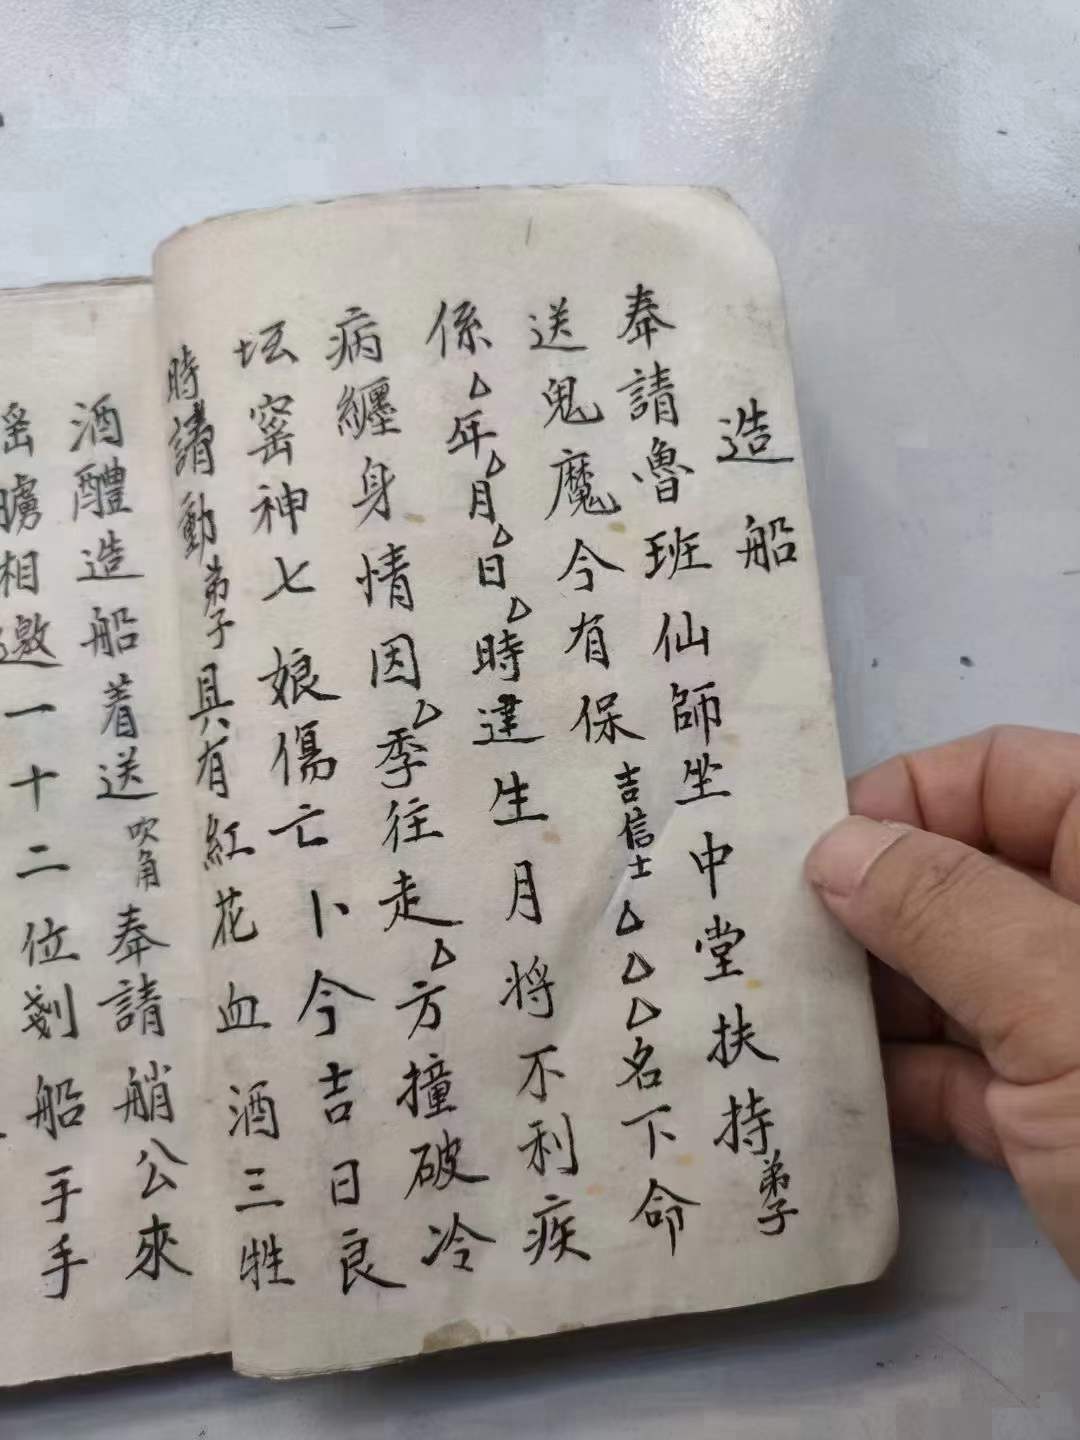 造船
奉請魯班仙師坐中堂扶持弟子
送鬼魔今有保吉信士△△△名下命
係△年△月△日△時建生月將不利疾
病纏身情因△季往走△方撞破冷
坛窑神七娘傷亡卜今吉日良
時請動弟子具有紅花血酒三牲
酒醴造船着送吹角奉請艄公來
相邀一十二位剗船手手